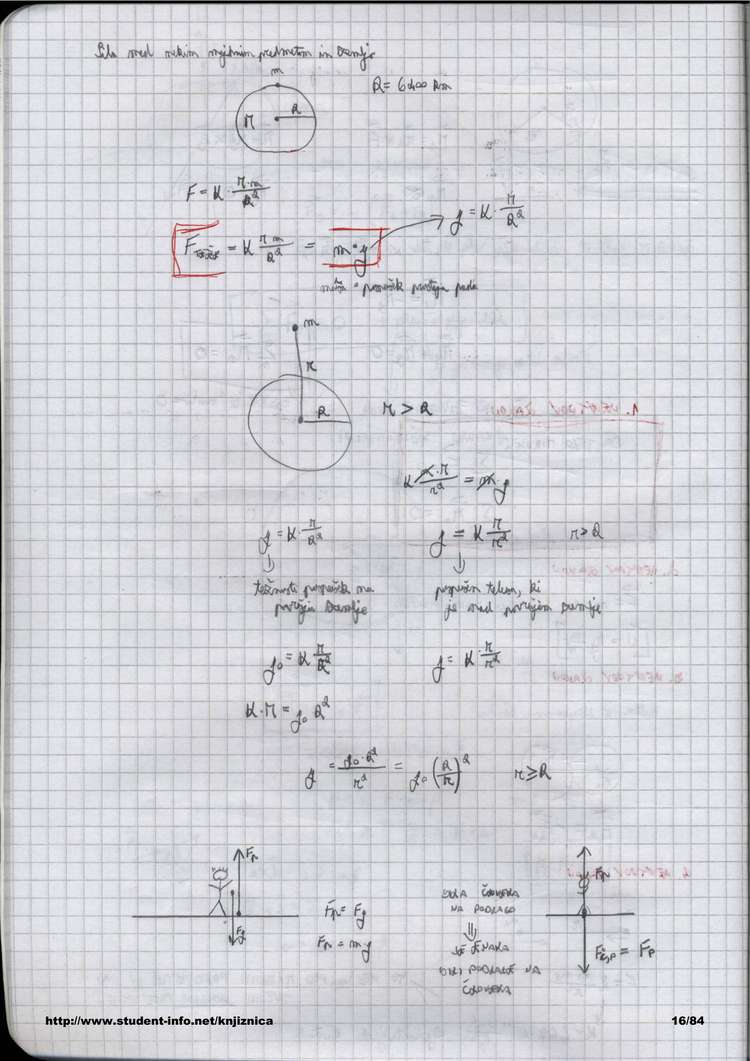 Sila med nekim majhnim predmetom in Zemljo
m
R = 6400 km
M R
F = K · M·m / R²
F = K M m / R² = m·g → g = K · M / R²
masa · pospešek prostega pada
m
r
R
r > R
K m·M / r² = m·g
g = K · M / R²
g = K M / r² r > R
težnosti pospešek na
površju Zemlje
pospešek telesa, ki
je nad površjem Zemlje
g₀ = K M / R²
g = K · M / r²
K·M = g₀ R²
g = g₀·R² / r² = g₀ (R/r)² r ≥ R
Fp
Fg
Fp = Fg
Fp = m g
SILA ČLOVEKA
NA PODLAGO
⇓
JE ENAKA
SILI PODLAGE NA
ČLOVEKA
Fp
= Fp
http://www.student-info.net/knjiznica
16/84